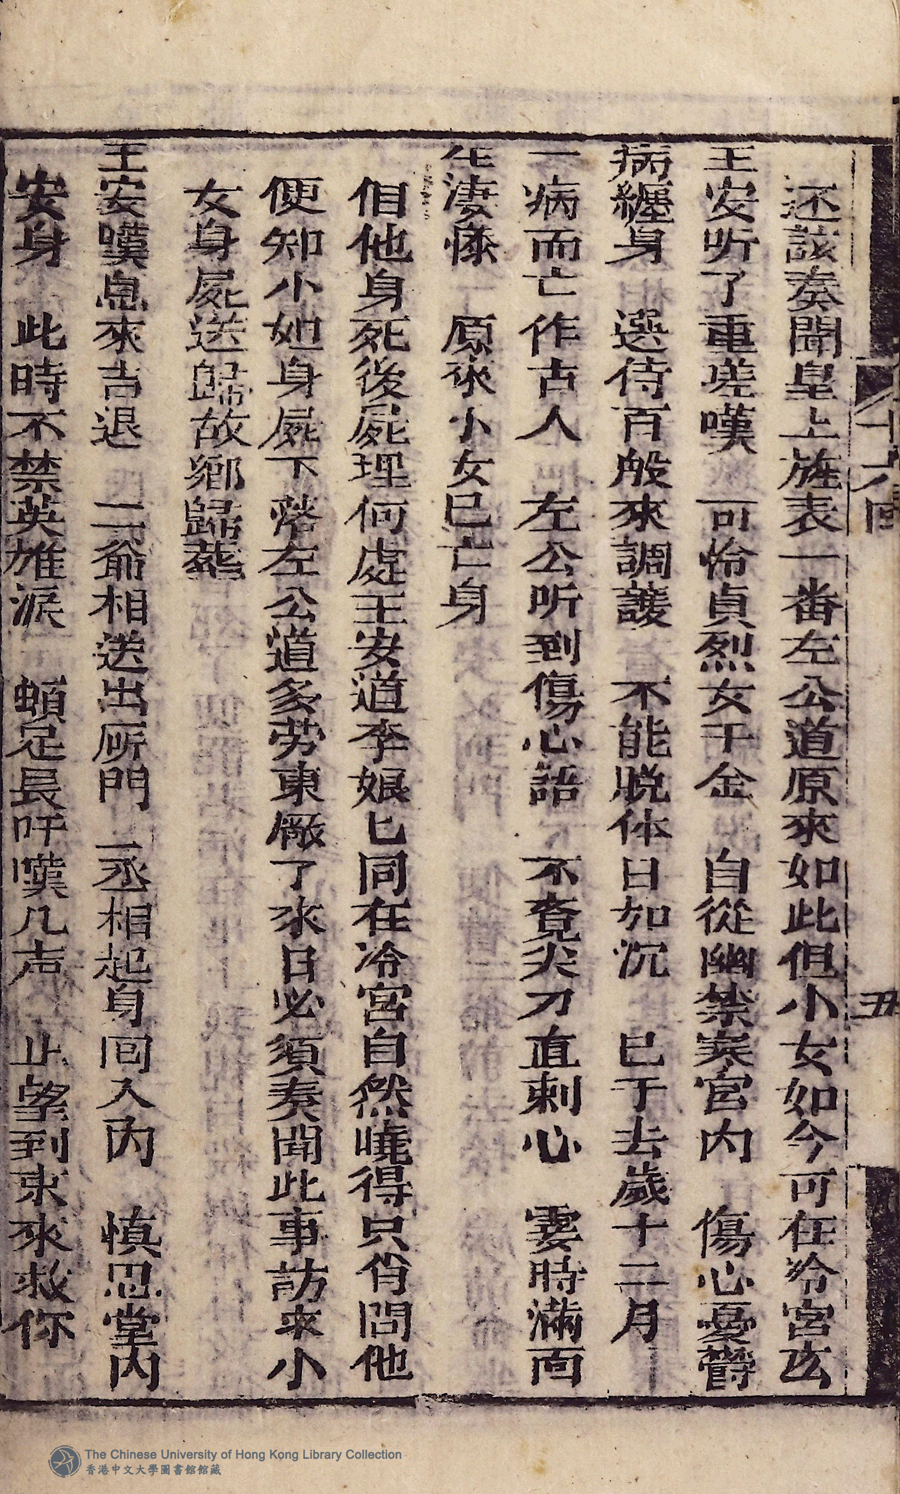 十六回
丑
还該奏聞皇上旌表一番左公道原來如此但小女如今可在冷宮庅
王安听了重嗟嘆　可怜貞烈女千金　自從幽禁寒宮内　傷心憂欝
病纏身　選侍百般來調護　不能脱体日如沉　已于去歲十二月
一病而亡作古人　左公听到傷心語　不覔尖刀直刺心　霎時滿面
生淒慘　原來小女已亡身
但他身死後屍理何處王安道李娘匕同在冷宮自然曉得只肖問他
便知小她身屍下落左公道多劳東厰了來日必須奏聞此事訪來小
女身屍送歸故鄉歸葬
王安嘆息來吉退　二爺相送出厛門　二丞相起身囘入內　慎忍堂內
安身　此時不禁英雄淚　頓足長吁嘆几声　止望到東來救你
The Chinese University of Hong Kong Library Collection
香港中文大學圖書館館藏